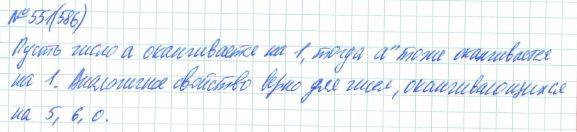 №551(586)
Пусть число a оканчивается на 1, тогда aⁿ тоже оканчивается
на 1. Аналогичное свойство верно для чисел, оканчивающихся
на 5, 6, 0.